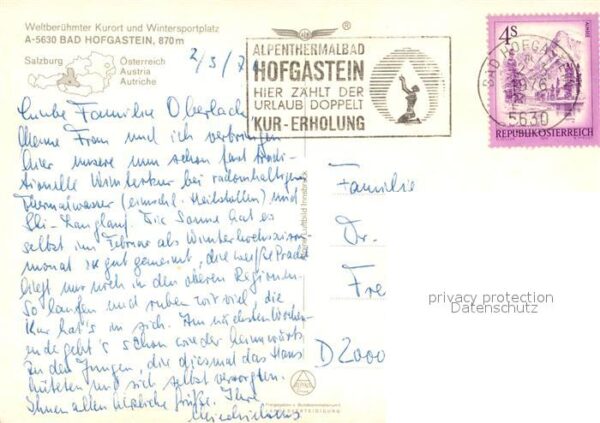 Weltberühmter Kurort und Wintersportplatz
A-5630 BAD HOFGASTEIN, 870 m
Salzburg
Österreich
Austria
Autriche
ALPENTHERMALBAD
HOFGASTEIN
HIER ZÄHLT DER
URLAUB DOPPELT
KUR-ERHOLUNG
®
4S
REPUBLIK ÖSTERREICH
BAD HOFGA
1976
5630
2/3/7
Liebe Familie Oberlach
Meine Frau und ich verbringen
hier unsere nun schon fast tradi-
tionelle Winterkur bei radonhaltigem
Thermalwasser (einschl. Heilstollen) und
Ski-Langlauf. Die Sonne hat es
selbst im Februar als Winterhochsaison-
monat gut gemeint, die weiße Pracht
liegt nur noch in den oberen Regionen.
So laufen und ruhen wir viel, die
Kur hat's in sich. Am nächsten Wochen-
ende geht's schon wieder heimwärts
zu den Jungen, die diesmal das Haus
hüteten und sich selbst versorgten.
Ihnen allen herzliche Grüße. Ihre
Luftbild Innsbruck
Familie
Dr.
Fre
D 2000
privacy protection
Datenschutz
ALPINE